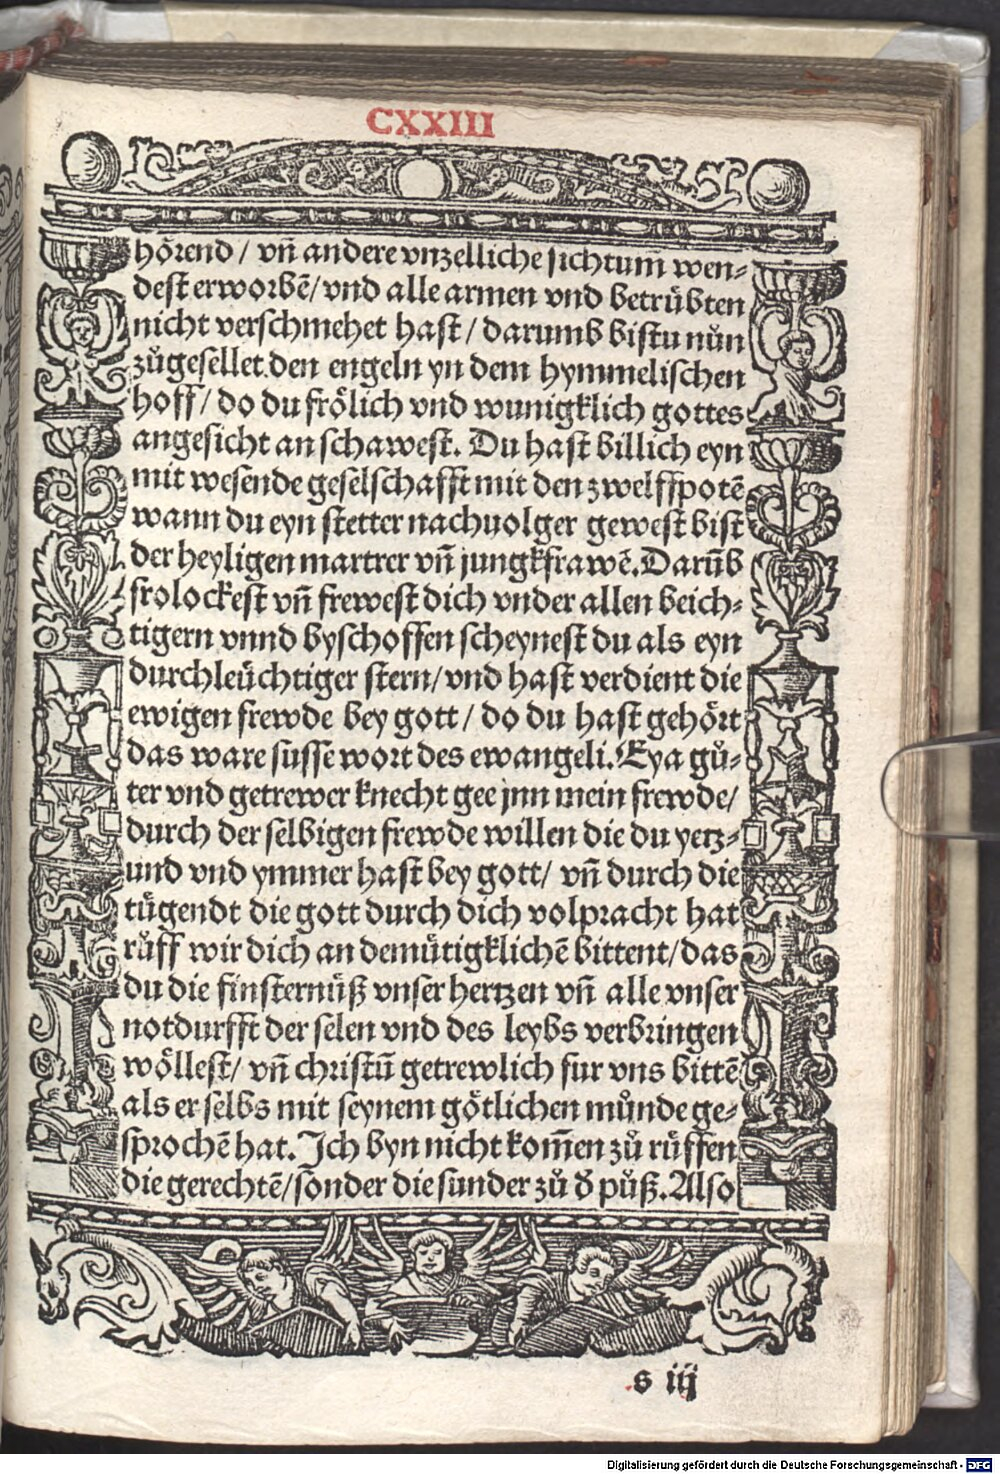 CXXIII
hörend / vñ andere vnzelliche sichtum wen⸗
dest erworbē/ vnd alle armen vnd betrübten
nicht verschmehet hast / darumb bistu nůn
zůgesellet den engeln yn dem hymmelischen
hoff / do du frölich vnd wunigklich gottes
angesicht an schawest. Du hast billich eyn
mit wesende geselschafft mit den zwelffpotē
wann du eyn stetter nachuolger gewest bist
der heyligen martrer vñ jungkfrawē. Darūb
frolockest vñ frewest dich vnder allen beich⸗
tigern vnnd byschoffen scheynest du als eyn
durchleüchtiger stern/ vnd hast verdient die
ewigen frewde bey gott / do du hast gehört
das ware susse wort des ewangeli. Eya gů⸗
ter vnd getrewer knecht gee jnn mein frewde/
durch der selbigen frewde willen die du yetz⸗
und vnd ymmer hast bey gott/ vñ durch die
tügendt die gott durch dich volpracht hat
růff wir dich an demütigklichē bittent/ das
du die finsternüß vnser hertzen vñ alle vnser
notdurfft der selen vnd des leybs verbringen
wöllest/ vñ christū getrewlich fur vns bittē
als er selbs mit seynem götlichen můnde ge⸗
sprochē hat. Ich byn nicht kom̄en zů růffen
die gerechtē/ sonder die sunder zů d̕ půß. Also
s iij
Digitalisierung gefördert durch die Deutsche Forschungsgemeinschaft - DFG